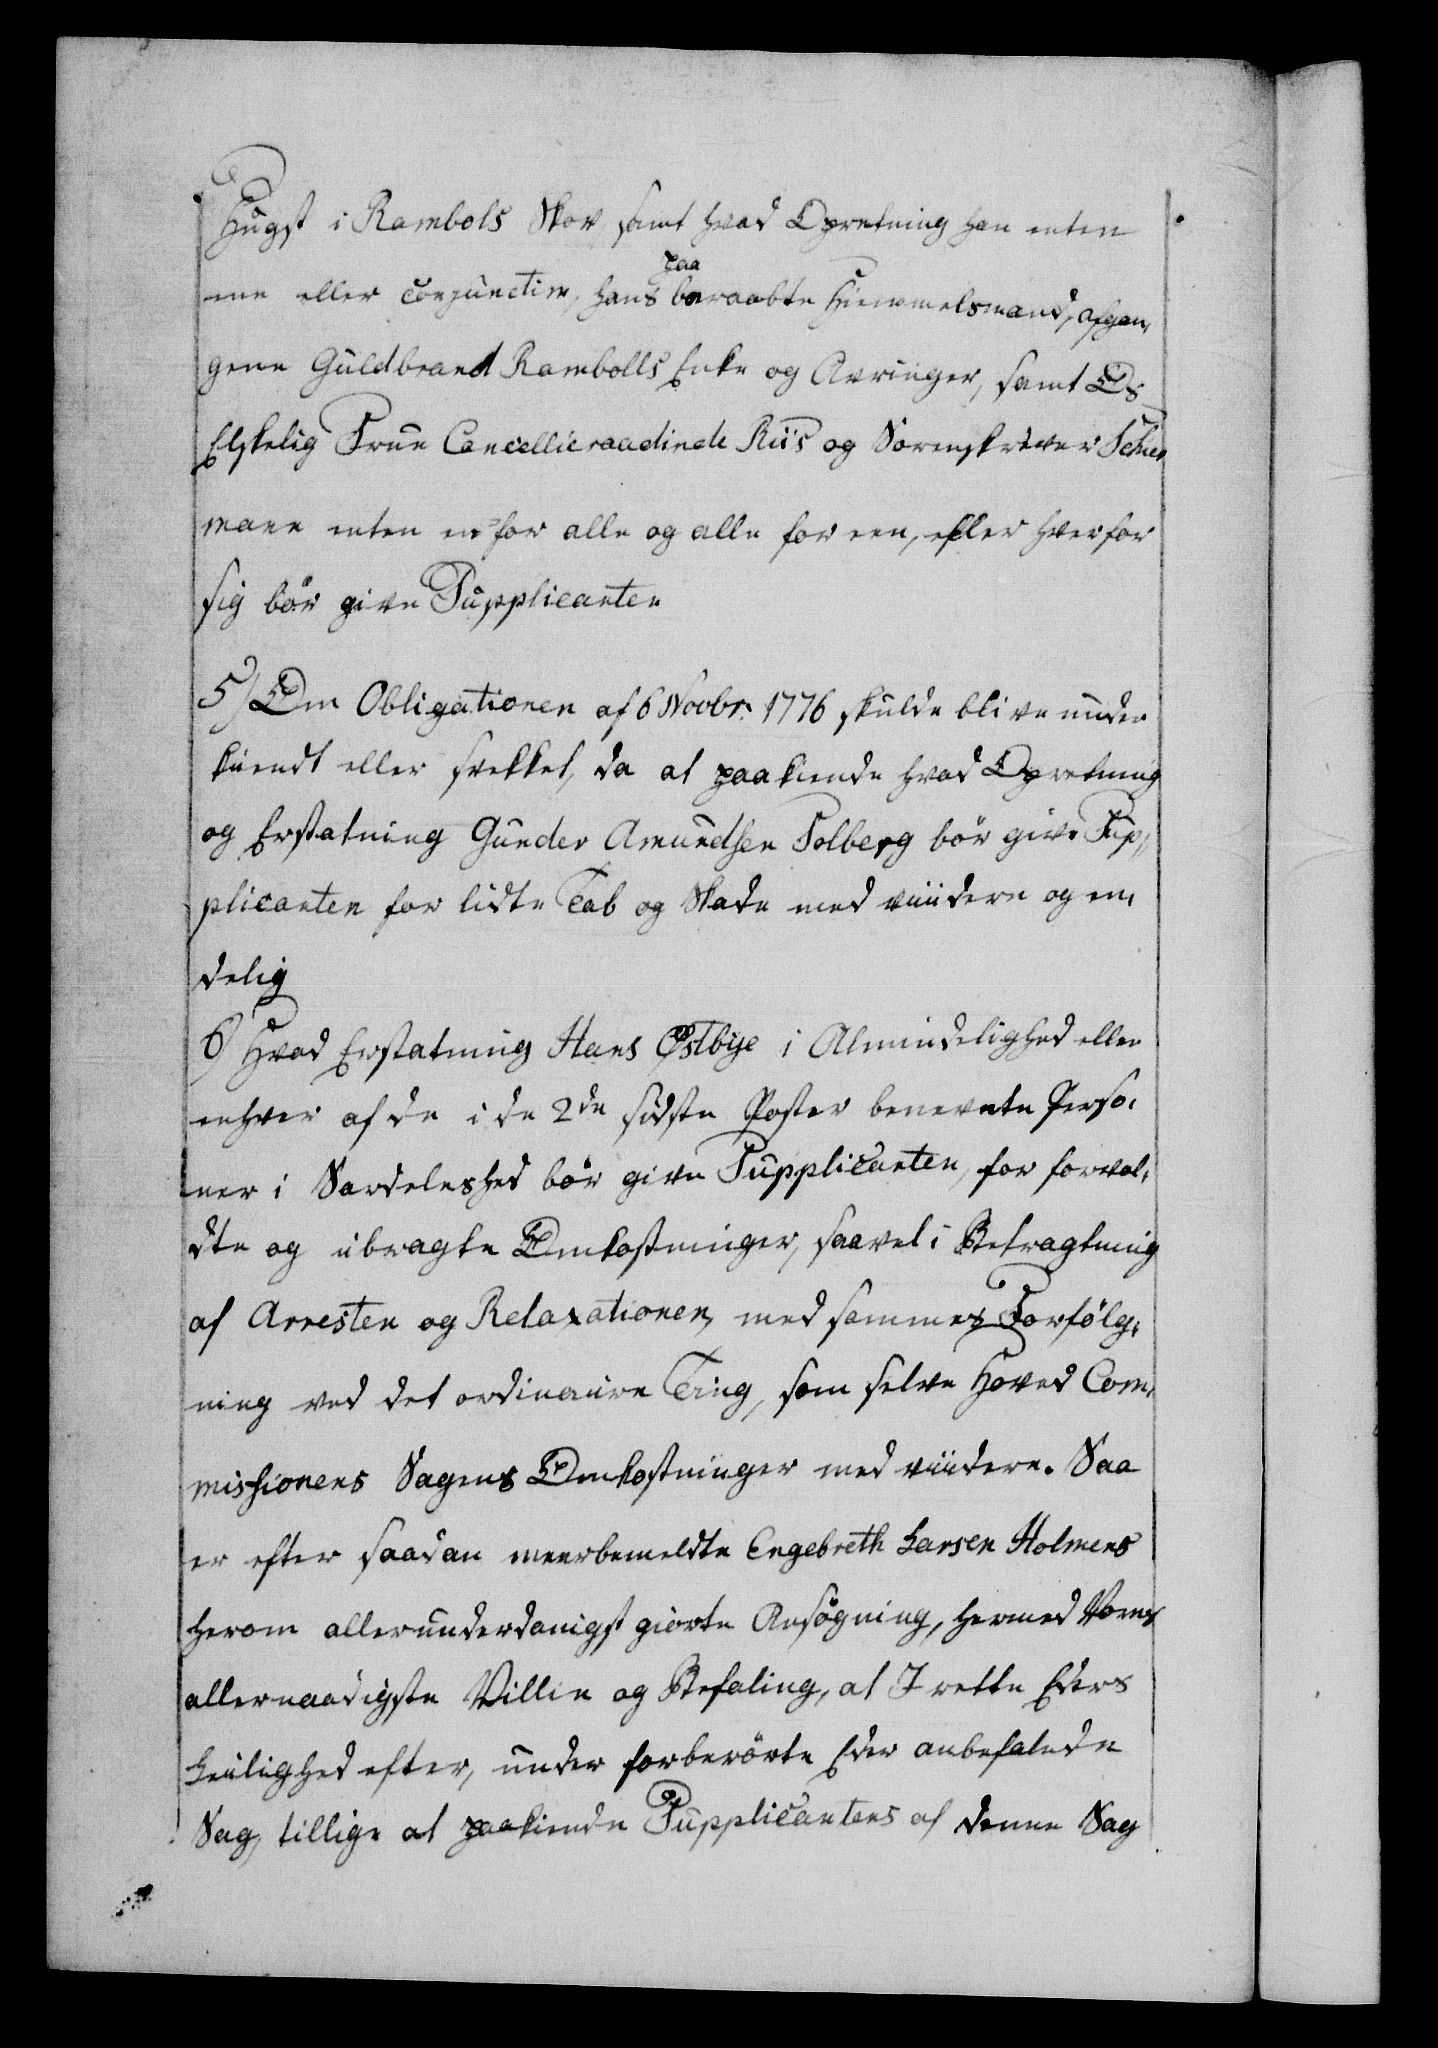 Hugst i Rambols Skov, samt hvad Opretning han enten
ene eller conjunctim, hans paa beraabte Hiemmelsmand, afgan¬
gene Guldbrand Rambolls Enke og Arvinger, samt Os
Elskelig Frue Cancellieraadinde Riis og Sorenskriver Schu¬
mann enten en for alle og alle for een, eller hver for
sig bör give Supplicanten
5) Om Obligationen af 6 Novbr. 1776 skulde blive under
kiendt eller svekket, da at paakiende hvad Opretning
og Erstatning Gunder Amundsen Solberg bör give Sup¬
plicanten for lidte Tab og Skade med viidere og en¬
delig
6) Hvad Erstatning Hans Østbye i Almindelighed eller
enhver af de i de 2de sidste Poster benevnte Perso¬
ner i Særdeleshed bör give Supplicanten, for forvol¬
dte og ubragte Omkostninger, saavel i Betragtning
af Arresten og Relaxationen, med sammes Forfölg¬
ning ved det ordinaire Ting, som selve Hoved Com¬
missionens Sagens Omkostninger med viidere. Saa
er efter saadan meerbemeldte Engebreth Larsen Holmens
herom allerunderdanigst giorte Ansögning, hermed Vores
allernaadigste Villie og Befaling, at I rette Eders
Leilighed efter, under forberörte Eder anbefalede
Sag, tillige at paakiende Supplicantens af denne Sag